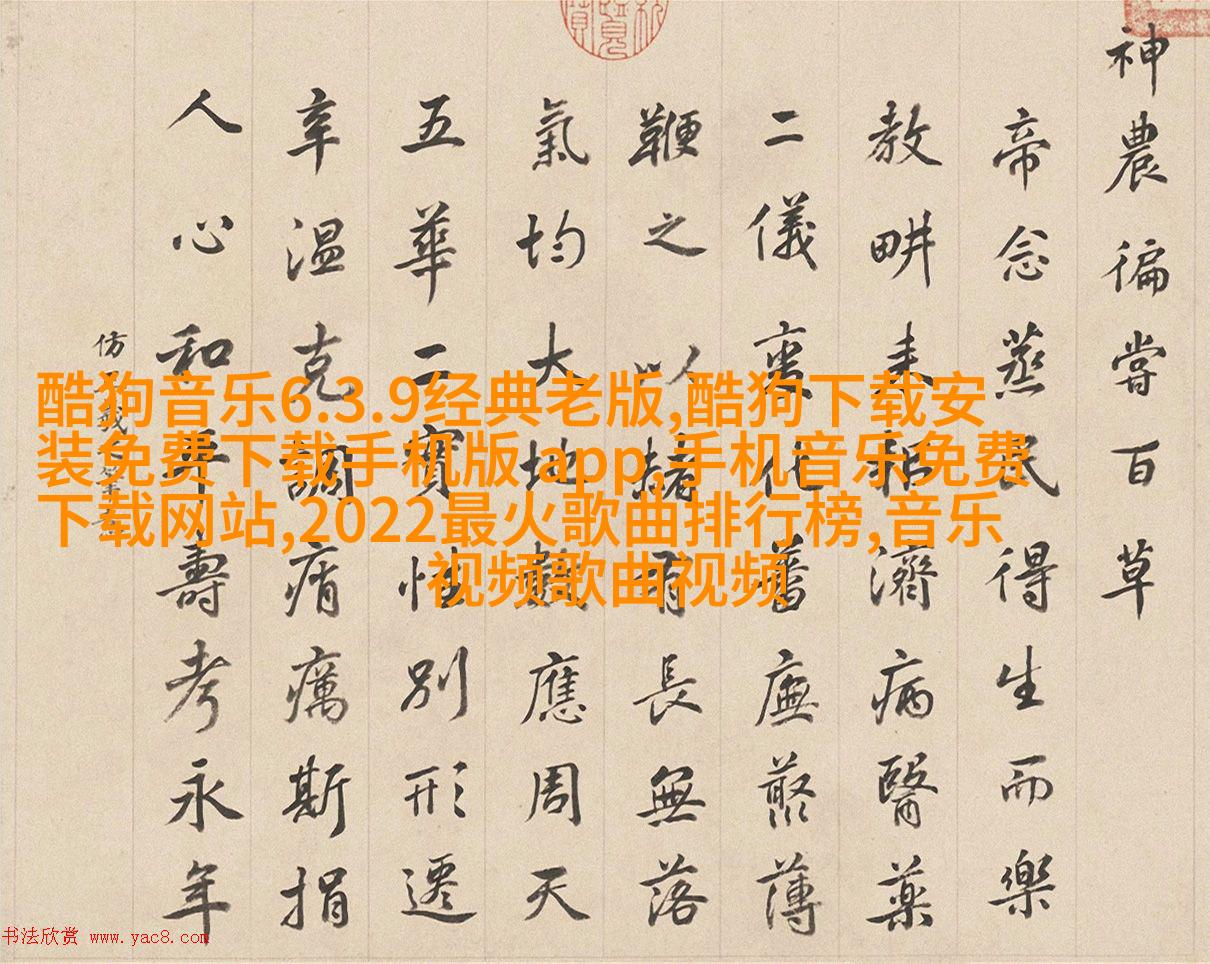 神農徧嘗百草
帝念蒸民得生而樂
教畊耒耜濟病醫藥
二儀化蕃廡叢薄
鞭之以赭有長無落
氣均大地數應周天
五華二實性別形遷
辛温克調痟癘斯捐
人心和平壽考永年
仿
酷狗音乐6.3.9经典老版,酷狗下载安
装免费下载手机版 app,手机音乐免费
下载网站,2022最火歌曲排行榜,音乐
视频歌曲视频
书法欣赏 www.yac8.com